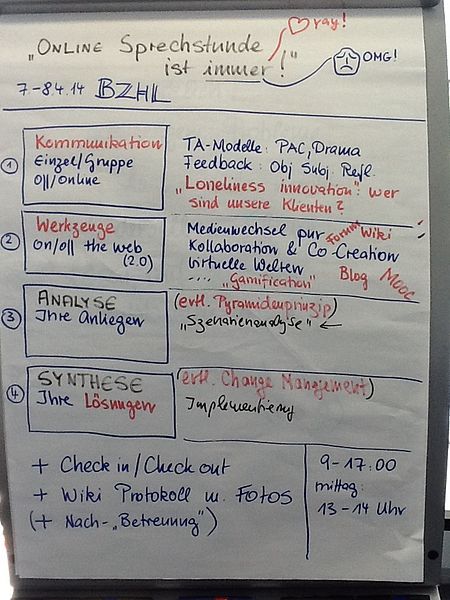 „ONLINE Sprechstunde
ist immer!"
ray!
OMG!
7.-8.4.14 BZHL
1
Kommunikation
Einzel/Gruppe
Off/Online
TA-Modelle: PAC, Drama
Feedback: Obj Subj. Refl.
„Loneliness innovation": wer
sind unsere Klienten?
2
Werkzeuge
On/off the web
(2.0)
Medienwechsel pur
Forum Wiki
Kollaboration & Co-Creation
Virtuelle Welten
.... „Gamification"
Blog
MOOC
3
ANALYSE
Ihre Anliegen
(evtl. Pyramidenprinzip)
„Szenarienanalyse" ←
4
SYNTHESE
Ihre Lösungen
(evtl. Change Management)
Implementierung
+ Check in/Check out
+ Wiki Protokoll m. Fotos
(+ Nach-„Betreuung")
9-17:00
mittag:
13-14 Uhr